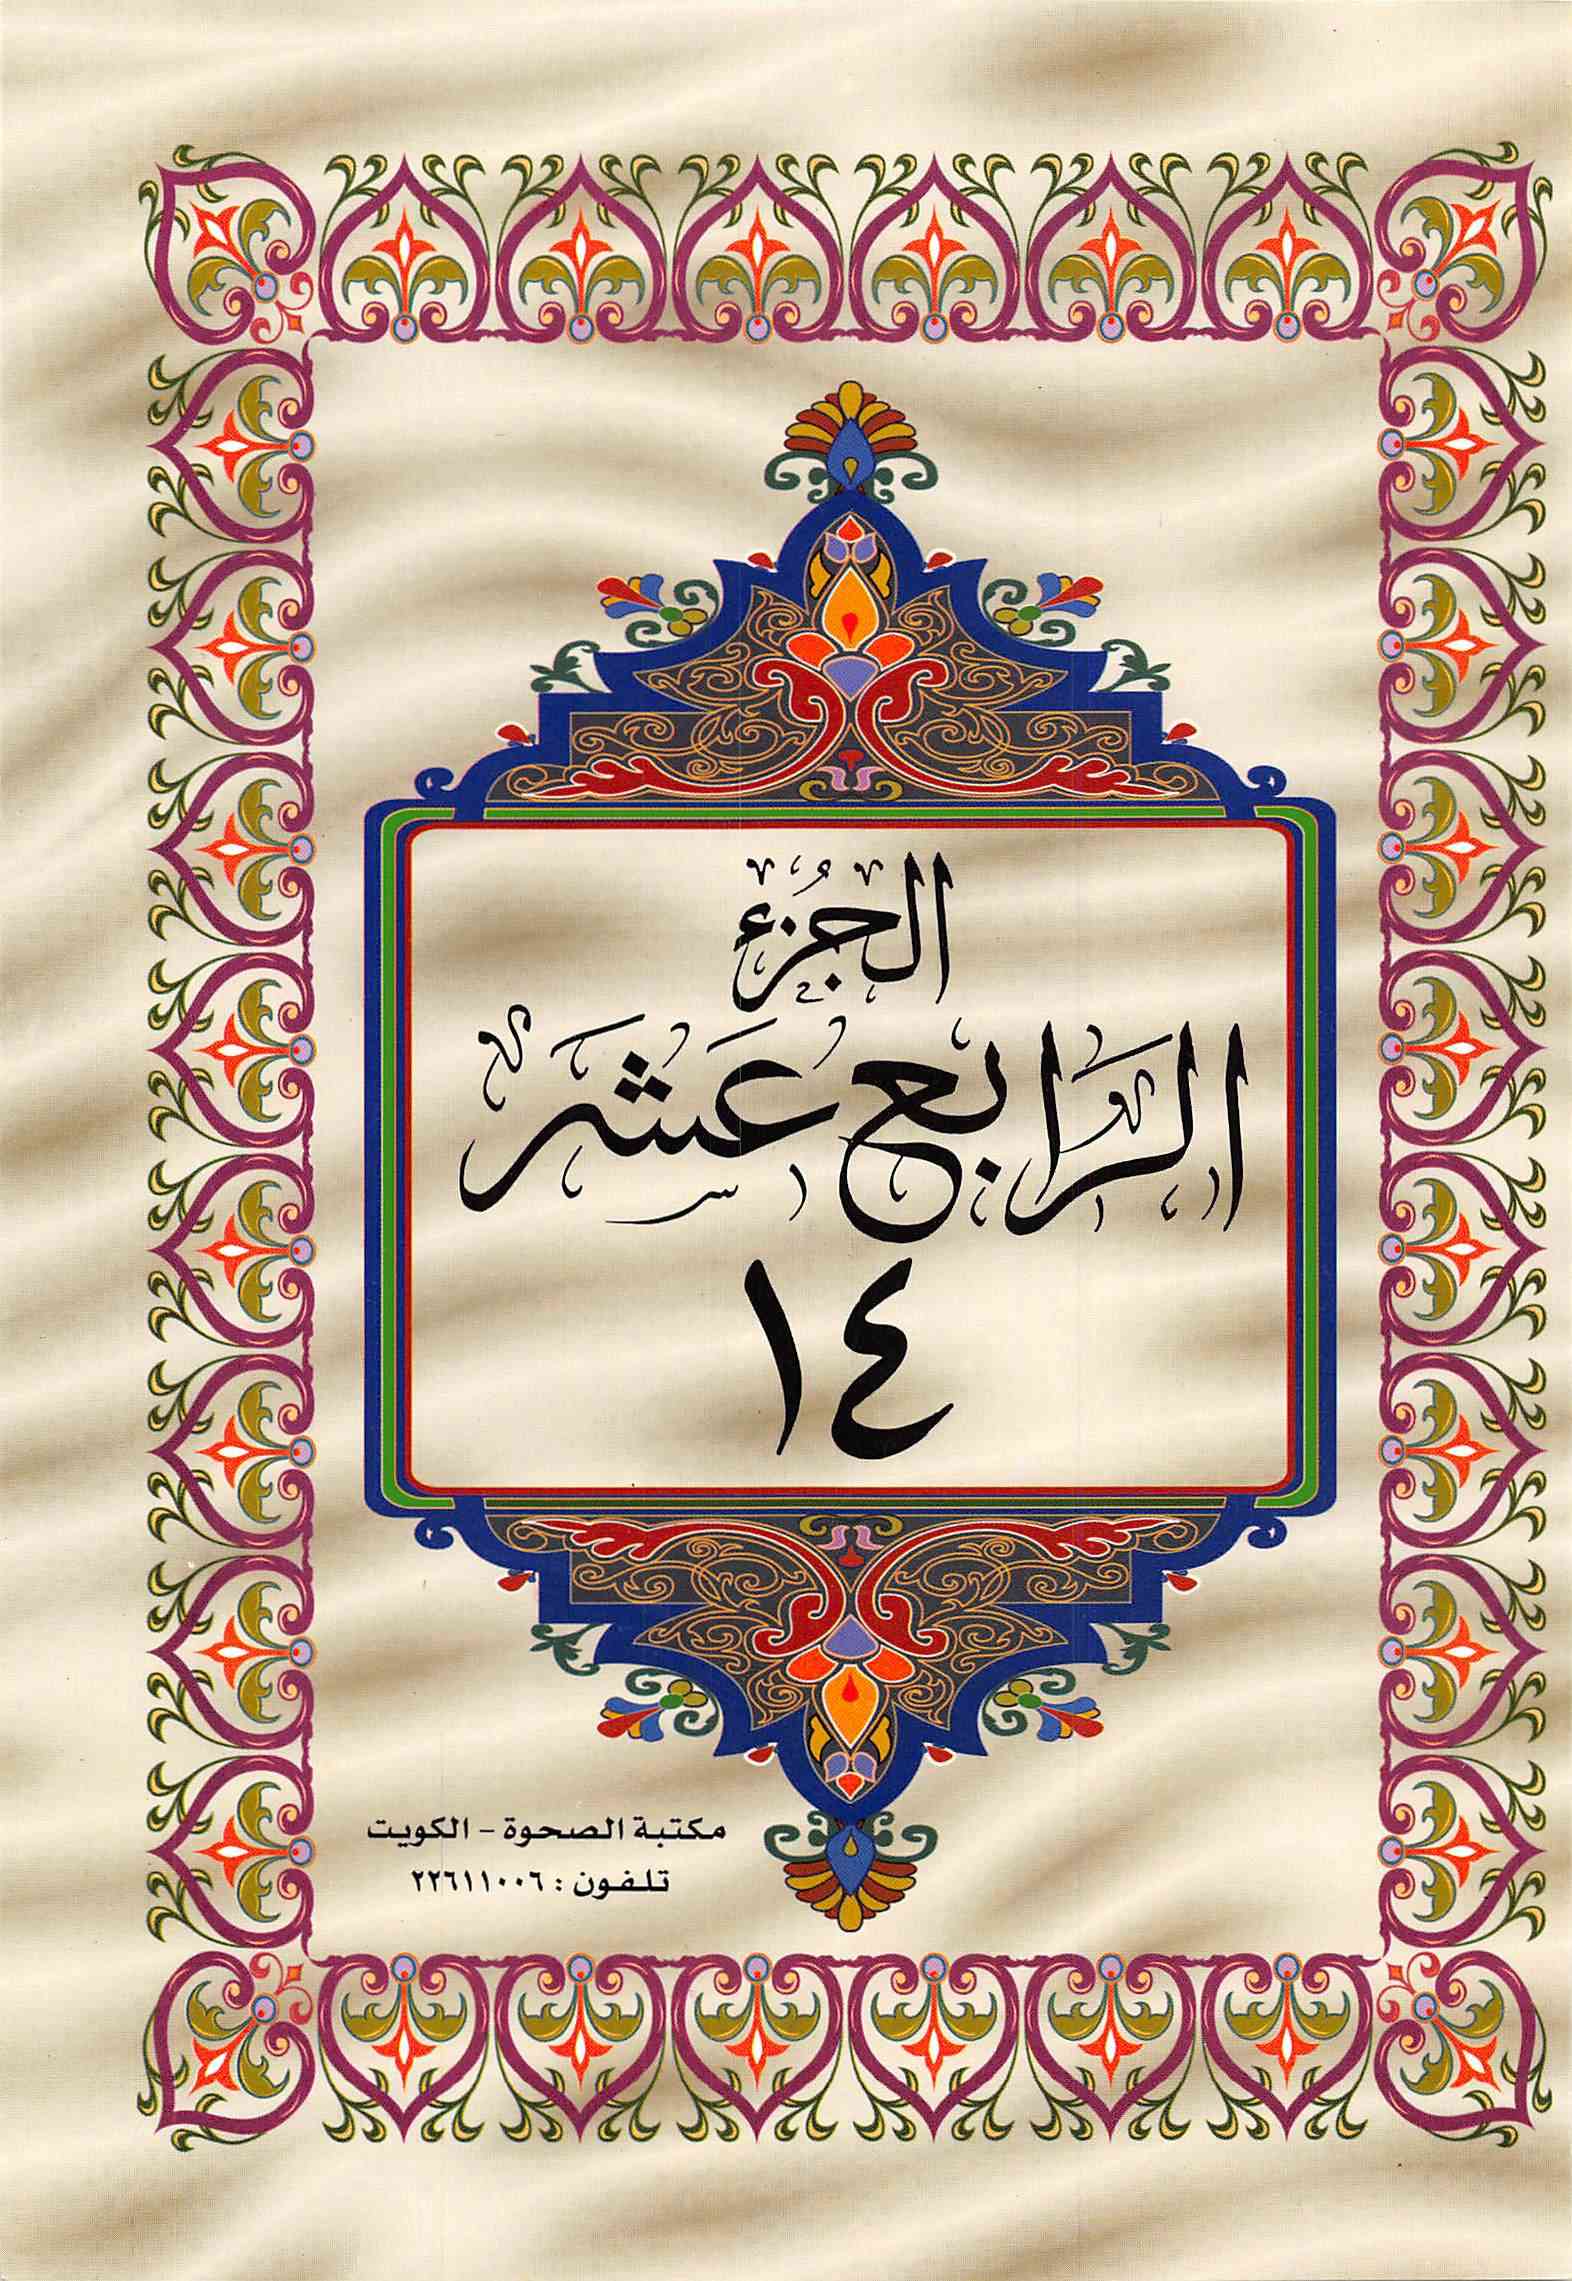 الجُزء
الرَّابع عَشَر
١٤
مكتبة الصحوة - الكويت
تلفون : ٢٢٦١١٠٠٦